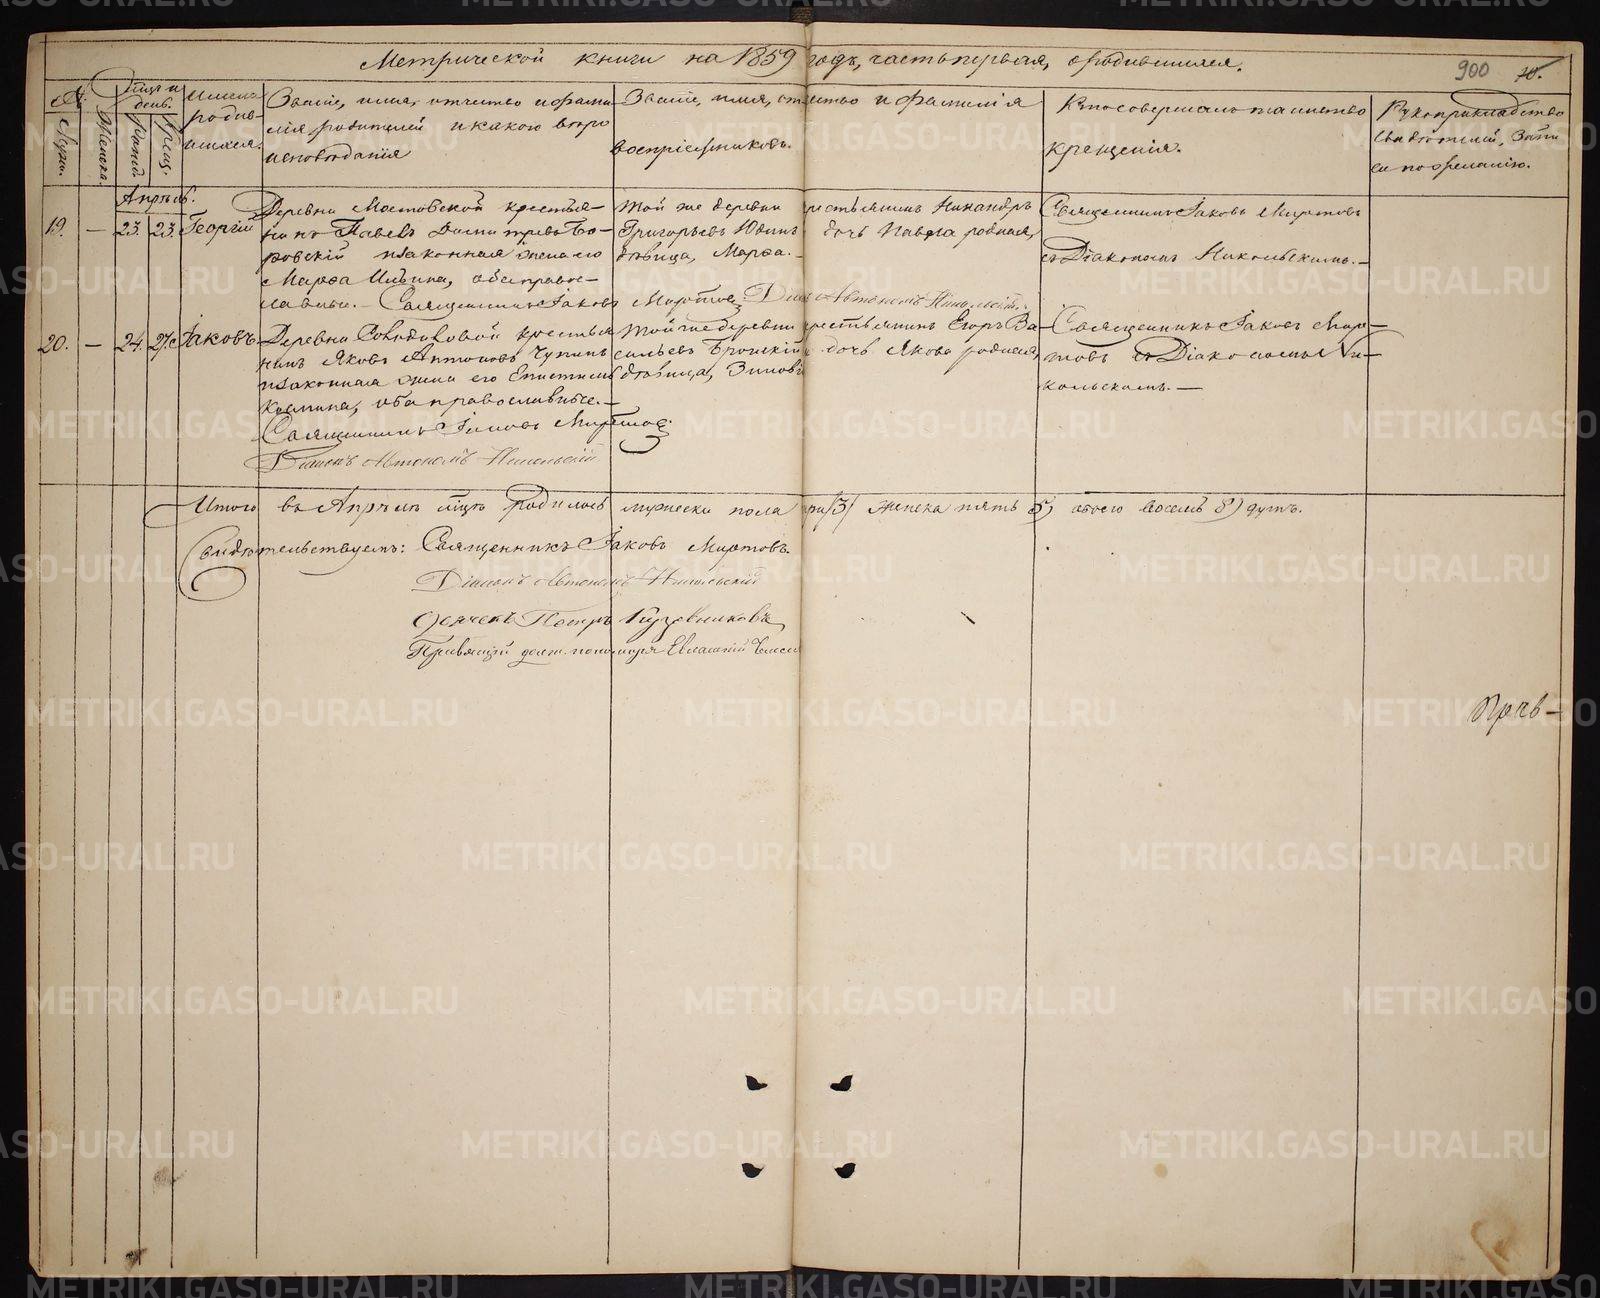 Метрической книги на 1859 годъ, часть первая, о родившихся.
900 10.
№.
Мужес.
Женска.
Мцъ и день.
Рожден.
Крещ.
Имена родив-
шихся.
Званіе, имя, отчество и фами-
лія родителей и какого веро
исповѣданія
Званіе, имя, отчество и фамилія
воспріемниковъ.
Кто совершалъ таинство
крещенія.
Рукоприкладство
свидѣтелей, запи
си по желанію.
Апрѣль.
19. — 23. 23. Георгій
Деревни Мостовской крестья-
нинъ Павелъ Дмитріевъ Бо-
ровскій и законная жена его
Марѳа Ильина, оба право-
славные. — Священникъ Іаковъ Миртовъ Діаконъ Автономъ Никольскій.
Той же деревни крестьянинъ Никандръ
Григорьевъ Юдинъ дочь Павла родная,
дѣвица, Марѳа. —
Священникъ Іаковъ Миртовъ
съ Діакономъ Никольскимъ. —
20. — 24. 27. Іаковъ.
Деревни крестья
нинъ Яковъ Антоновъ
и законная жена его Епистимія
Козмина, оба православные. —
Священникъ Іаковъ Миртовъ
Діаконъ Автономъ Никольскій
Той же деревни крестьянинъ Егоръ Ва-
сильевъ дочь Якова родная,
дѣвица, Зиновія
Священникъ Іаковъ Мир-
товъ съ Діакономъ Ни-
кольскимъ. —
Итого въ Апрѣлѣ мцѣ родилось мужеска пола три /3/ женска пять 5) обоего восемь 8) душъ.
Свидѣтельствуемъ: Священникъ Іаковъ Миртовъ.
Діаконъ Автономъ Никольскій
Дьячекъ Петръ Кузовниковъ
Правящій долж. пономаря Евлампій
METRIKI.GASO-URAL.RU